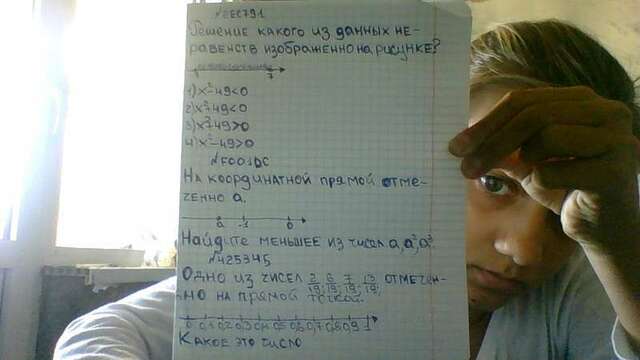 №2EE791
Решение какого из данных не-
равенств изображенно на рисунке?
7
1) x²-49<0
2) x²+49<0
3) x²+49>0
4) x²-49>0
№F001DC
На координатной прямой отме-
ченно a.
a -1 0
Найдите меньшее из чисел a, a², a³.
№425345
Одно из чисел 2/19; 6/19; 7/19; 13/19; отмечен-
но на прямой точкой.
0 0,1 0,2 0,3 0,4 0,5 0,6 0,7 0,8 0,9 1
Какое это число